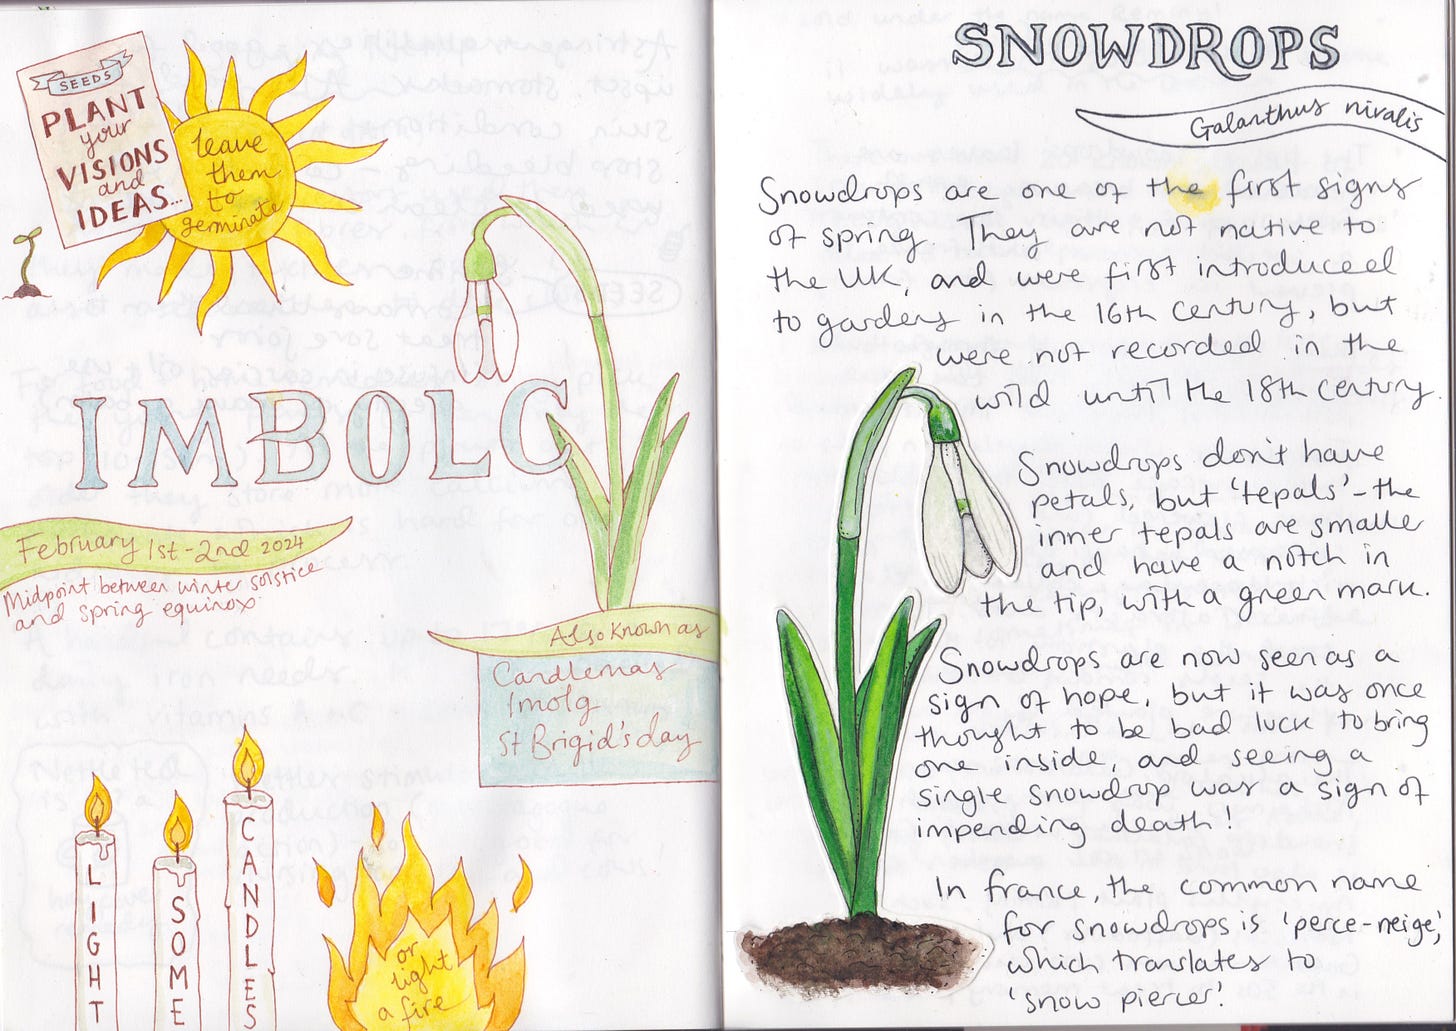 SEEDS
PLANT
your
VISIONS
and
IDEAS...
leave
them
to
germinate
IMBOLC
February 1st - 2nd 2024
Midpoint between winter solstice
and spring equinox
Also known as
Candlemas
Imolg
St Brigid's day
LIGHT
SOME
CANDLES
or
light
a fire
SNOWDROPS
Galanthus nivalis
Snowdrops are one of the first signs
of spring. They are not native to
the UK, and were first introduced
to gardens in the 16th century, but
were not recorded in the
wild until the 18th century.
Snowdrops don't have
petals, but 'tepals' - the
inner tepals are smaller
and have a notch in
the tip, with a green mark.
Snowdrops are now seen as a
sign of hope, but it was once
thought to be bad luck to bring
one inside, and seeing a
single snowdrop was a sign of
impending death!
In france, the common name
for snowdrops is 'perce-neige',
which translates to
'snow piercer'!